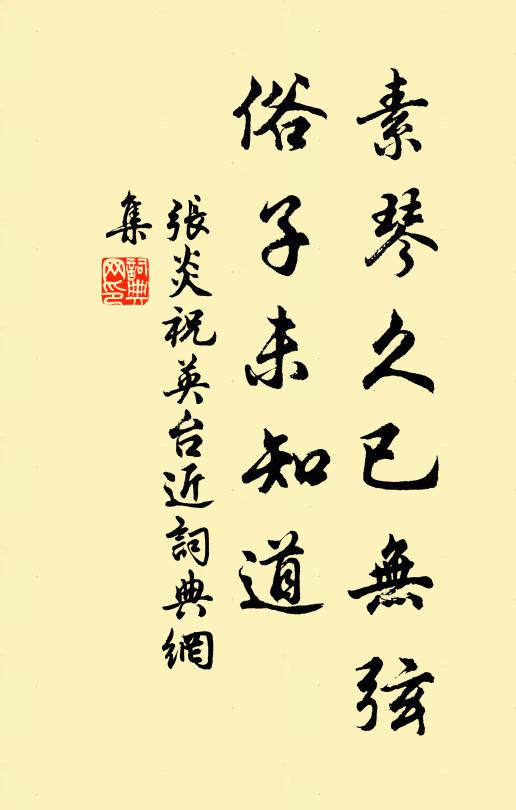 素琴久已無弦
俗子未知道
張炎祝英台近詞典網
集
詞典
网印